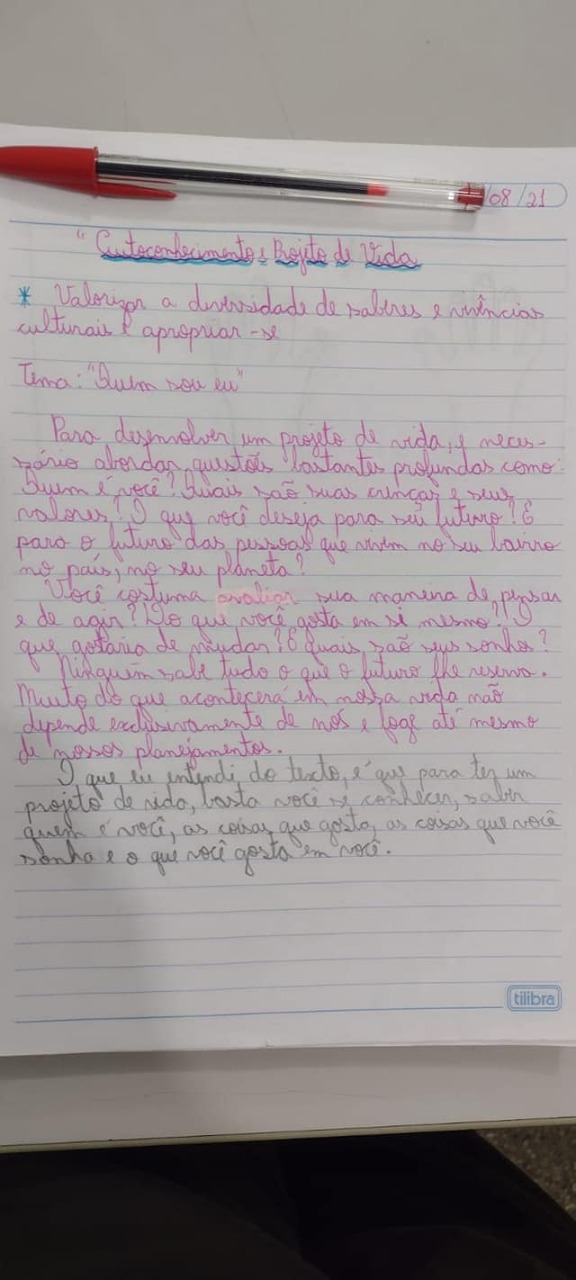 /08/21
" Autoconhecimento e Projeto de Vida
* Valorizar a diversidade de saberes e vivências
culturais e apropriar-se
Tema: "Quem sou eu"
Para desenvolver um projeto de vida, é neces-
sário abordar questões bastantes profundas como:
Quem é você? Quais são suas crenças e seus
valores? O que você deseja para seu futuro? E
para o futuro das pessoas que vivem no seu bairro
no país, no seu planeta?
Você costuma avaliar sua maneira de pensar
e de agir? Do que você gosta em si mesmo? O
que gostaria de mudar? E quais são seus sonhos?
Ninguém sabe tudo o que o futuro lhe reserva.
Muito do que acontecerá em nossa vida não
depende exclusivamente de nós e foge até mesmo
de nossos planejamentos.
O que eu entendi do texto, é que para ter um
projeto de vida, basta você se conhecer, saber
quem é você, as coisas que gosta, as coisas que você
sonha e o que você gosta em você.
tilibra